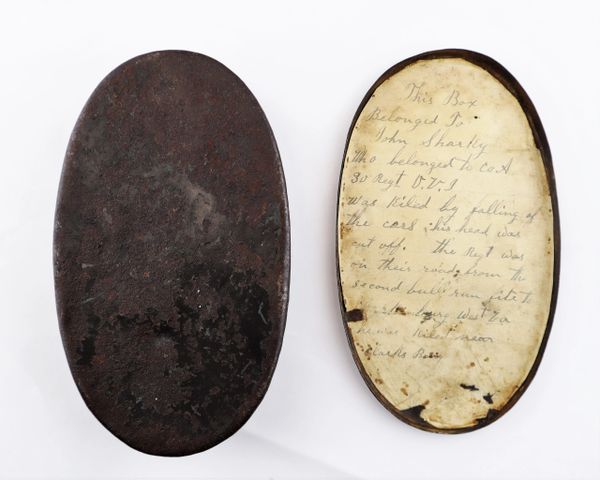 This Box
Belonged To
John Sharky
Who belonged to Co A
30 Regt O.V.I
Was Kiled by falling of
the cars his head was
cut off. the Regt was
on their road from the
second bull run fite to
burg West Va
he was Kiled near